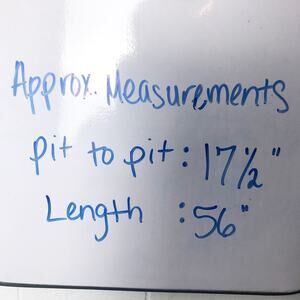 Approx. Measurements
pit to pit: 17½"
Length : 56"